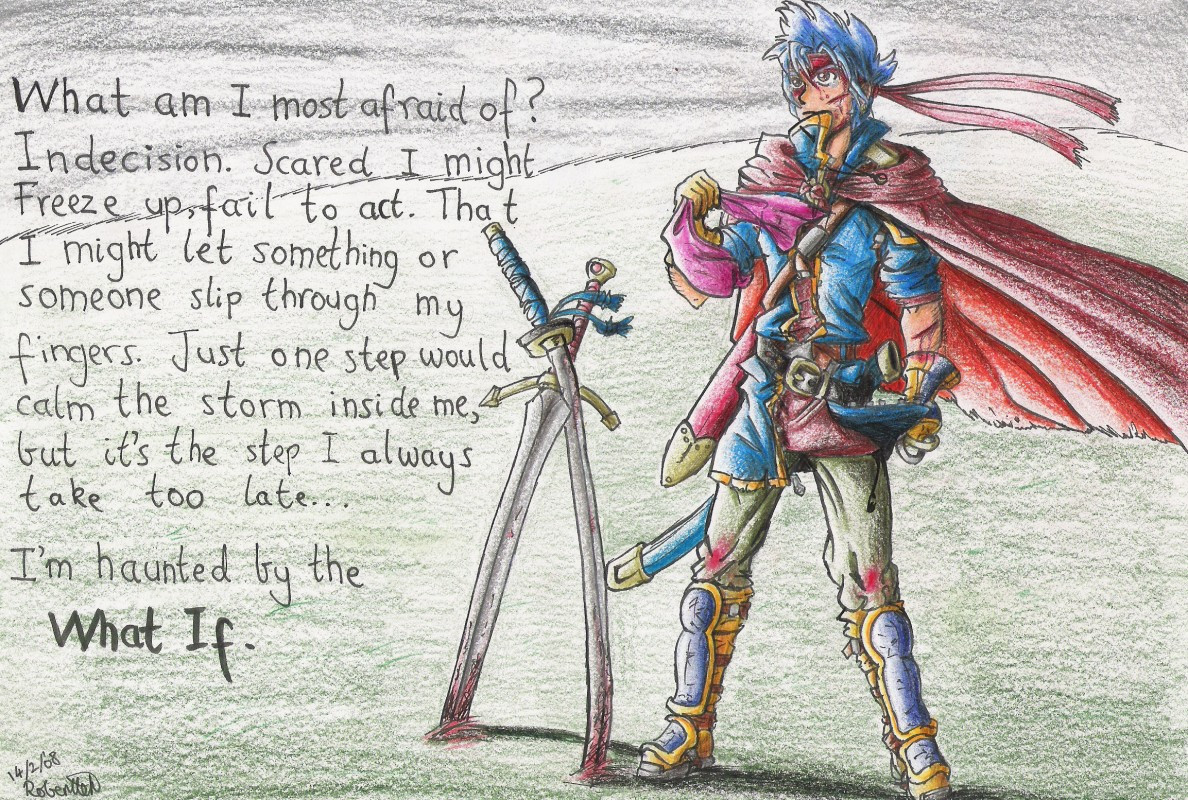 What am I most afraid of?
Indecision. Scared I might
Freeze up, fail to act. That
I might let something or
someone slip through my
fingers. Just one step would
calm the storm inside me,
but it's the step I always
take too late...
I'm haunted by the
What If.
14/2/08